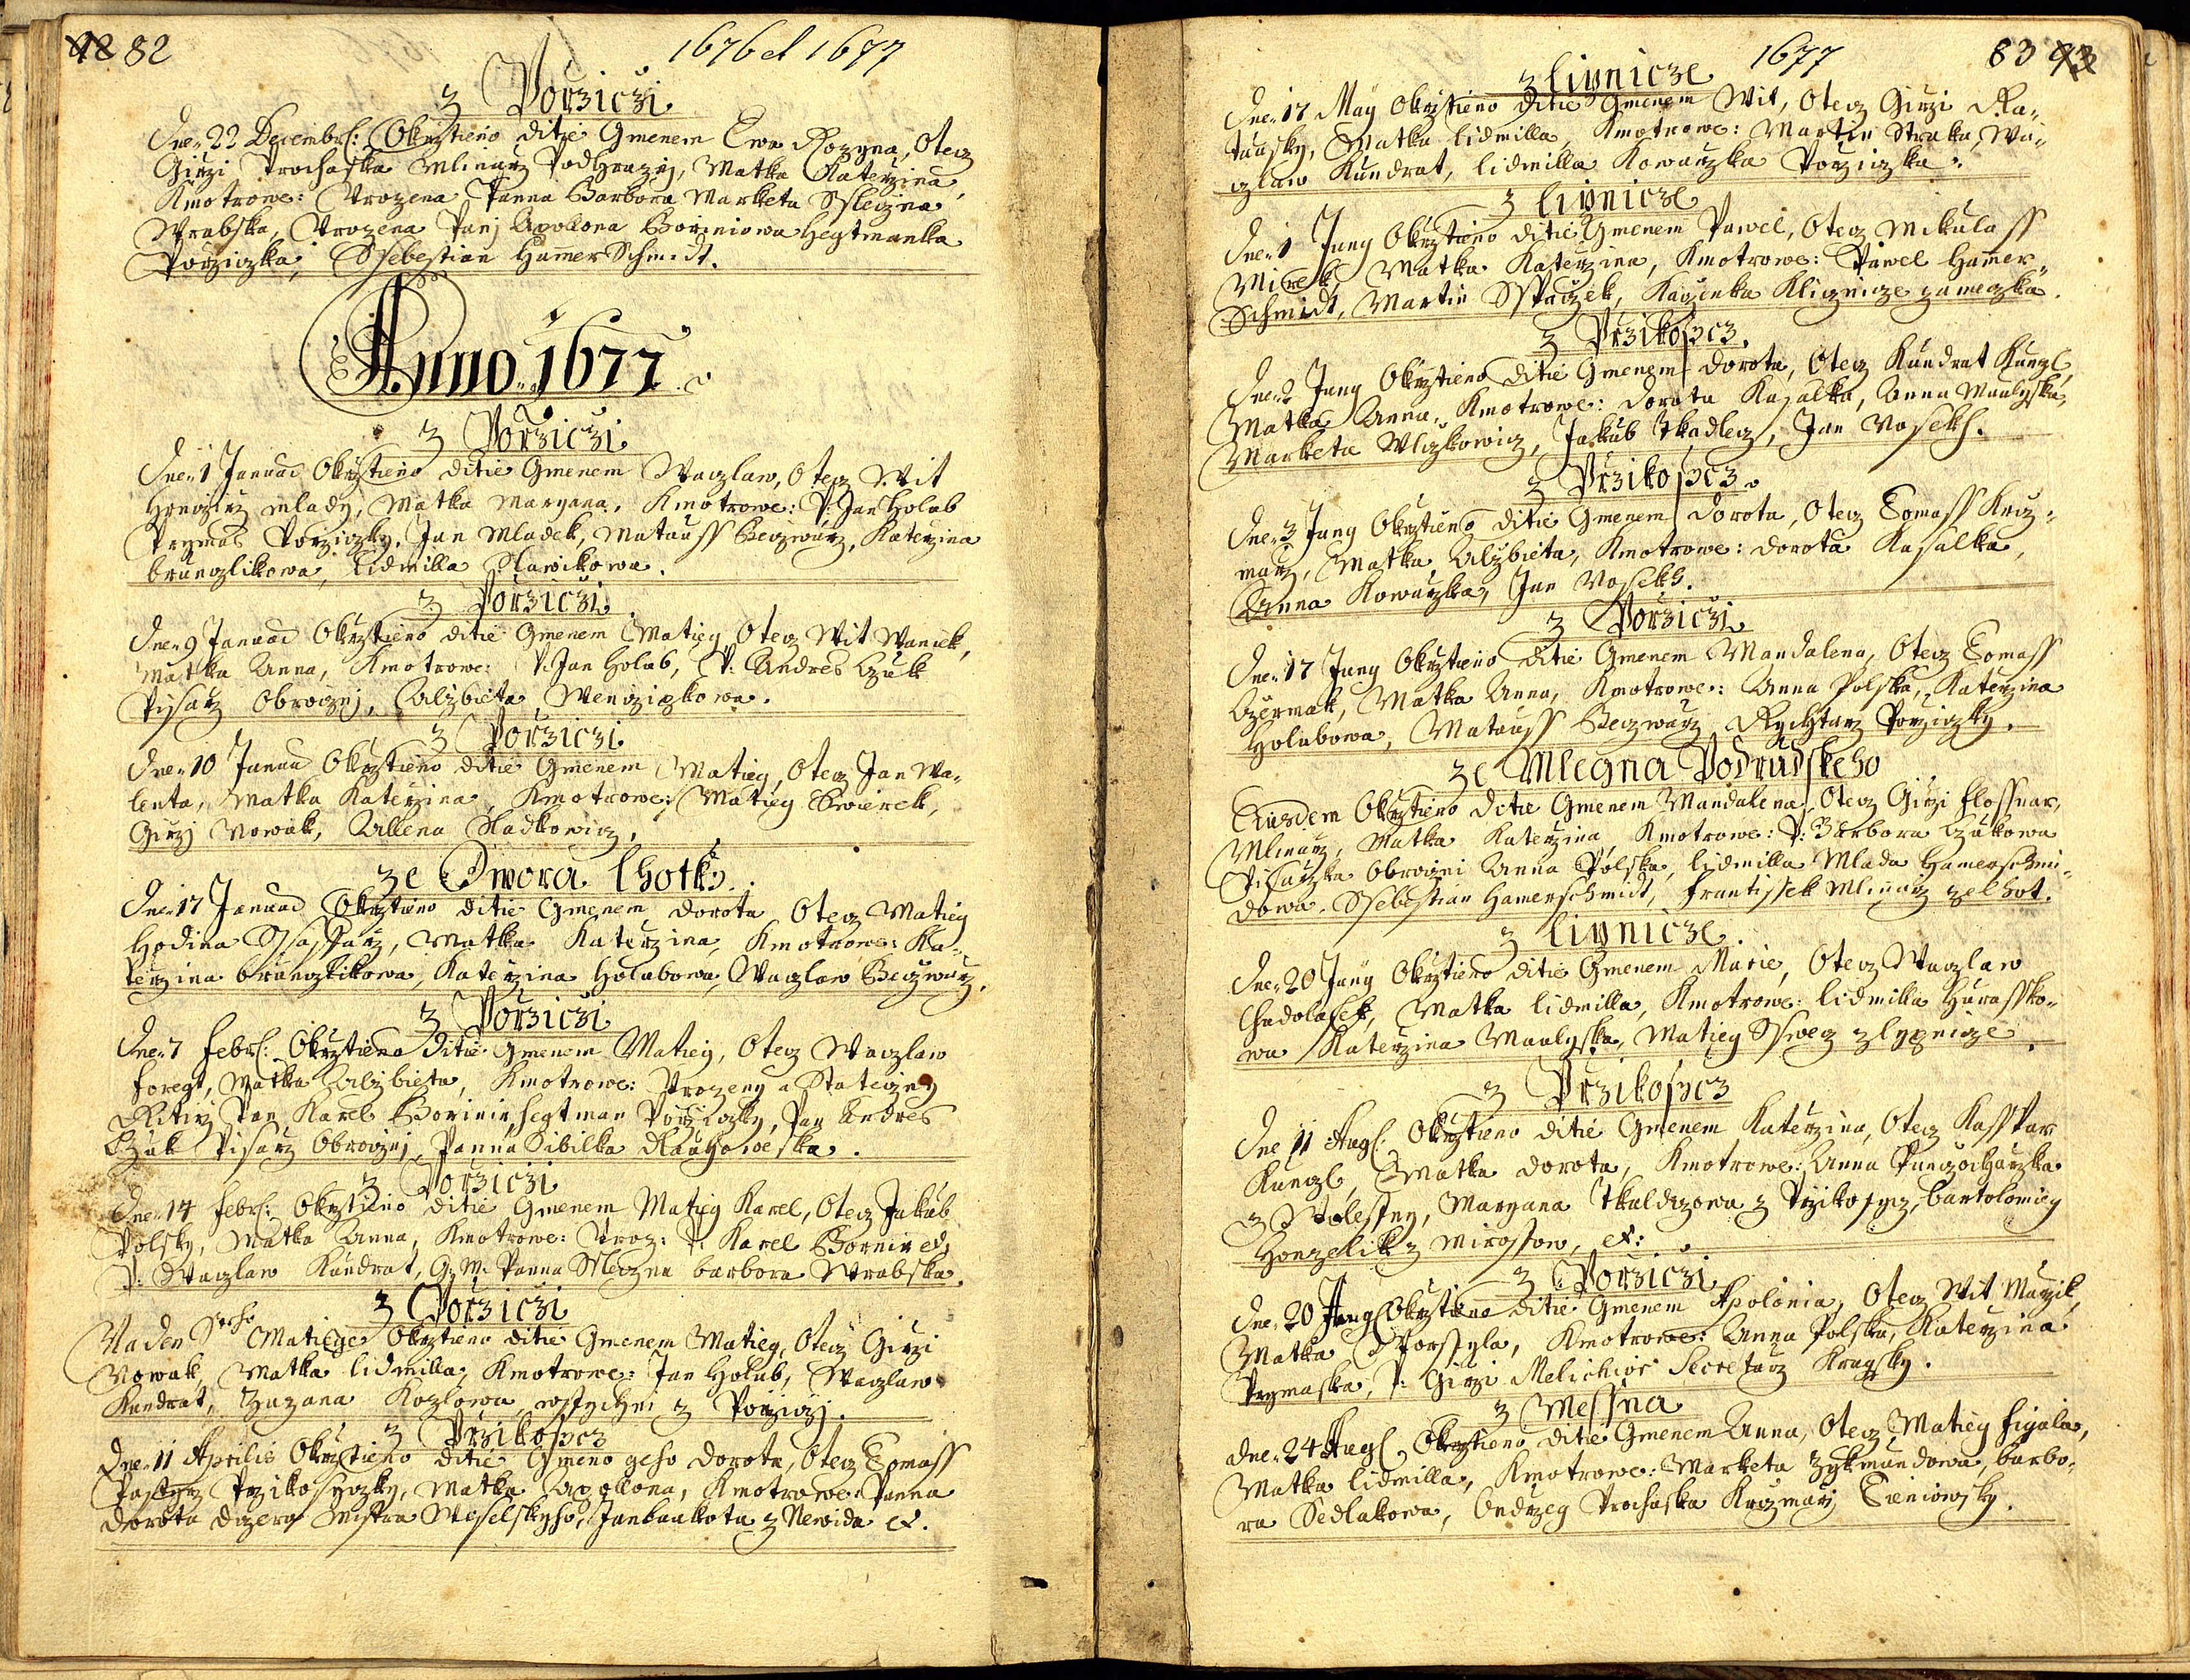 82
1676 et 1677
z Porziczi
Dne 22 Decembr: Okrztieno Ditie Gmenem Ewa Rozyna, Otecz
Girzi Prochaska Mlinarz PodHrazy, Matka Katerzina
Kmotrowe: Vrozena Panna Barbora Marketa Sslecžna
Wrabska, Vrozena Panj Apollona Boriniowa Hegtmanka
Porziczka, Ssebestian HamerSchmidt.
Anno 1677
z Porziczi
Dne 1 Januari Okrztieno ditie Gmenem Waczlaw, Otecz Wit
mlady, Matka Maryana, Kmotrowe: P: Jan Holub
Prymas Porziczky, Jan Mladek, Matauss Beczwarz, Katerzina
brunczlikowa, Lidmilla Slawikowa.
z Porziczi
Dne 9 Januari Okrztieno ditie Gmenem Matieg, Otecz Wit Waniek,
Matka Anna, Kmotrowe: P: Jan Holub, P: Andres Czuk
Pisarz Obrocznj, Alzbieta
z Porziczi
Dne 10 Januari Okrztieno ditie Gmenem Matieg, Otecz Jan Wa-
lenta, Matka Katerzina, Kmotrowe: Matieg Kwierek,
Girzj Nowak, Allena Sladkowicz.
ze Dwora Lhotky
Dne 17 Januari Okrztieno ditie Gmenem dorota Otecz Matieg
Hodina Ssaffarz, Matka Katerzina Kmotrowe: Ka-
terzina brunczlikowa, Katerzina Holubowa, Waczlaw Beczwarz.
z Porziczi
Dne 7 Febr: Okrztieno ditie Gmenem Matieg, Otecz Waczlaw
Foregt, Matka Alzbieta, Kmotrowe: Vrozeny a Stateczny
Ritirz Pan Karel Borinie, hegtman Porziczky, Pan Andres
Czuk Pisarz Obrocznj, Panna Sibilka
z Porziczi
Dne 14 Febr: Okrztieno ditie Gmenem Matieg Karel, Otecz Jakub
Polsky, Matka Anna, Kmotrowe: Vroz: P: Karel
P: Waczlaw Kundrat, G: M: Panna Sleczna barbora Wrabska.
z Porziczi
Na den S° Matiege Okrztieno ditie Gmenem Matieg, Otecz Girzi
Nowak, Matka Lidmilla, Kmotrowe: Jan Holub, Waczlaw
Kundrat, Zuzana Kozlowa, wssyczkni z Porziczj.
z Przikosycz
Dne 11 Aprilis Okrztieno ditie Gmeno geho dorota, Otecz Tomass
Pastyrz Przikosyczky, Matka Apollona, Kmotrowe: Panna
dorota dczera Mistra Weselskyho, Jan z Newida et.
1677
83
z Lipnicze
Dne 17 May Okrztieno ditie Gmenem Wit, Otecz Girzi Ra-
tausky, Matka Lidmilla, Kmotrowe: Martin Straka, Wa-
czlaw Kundrat, Lidmilla Kowarzka Porziczka.
z Lipnicze
Dne 1 Juny Okrztieno ditie Gmenem Pawel, Otecz Mikulass
Mirek, Matka Katerzina, Kmotrowe: Pawel Hamer-
Schmidt, Martin Sspaczek, Kaczenka Klicznicze zameczka.
z Przikosycz.
Dne 2 Juny Okrztieno ditie Gmenem dorota, Otecz Kundrat Kunzl,
Matka Anna, Kmotrowe: dorota Kasalka, Anna Maulyska,
Marketa Wlczkowicz, Jakub Tkadlecz, Jan Vosekh.
z Przikosycz.
Dne 3 Juny Okrztieno ditie Gmenem dorota, Otecz Tomass Krcz-
marz, Matka Alzbieta, Kmotrowe: dorota Kasalka,
Anna Kowarzka, Jan Vosekh.
z Porziczi
Dne 17 Juny Okrztieno ditie Gmenem Mandalena, Otecz Tomass
Czermak, Matka Anna, Kmotrowe: Anna Polska, Katerzina
Holubowa, Matauss Beczwarz Rychtarz Porziczky.
ze Mlegna Podrudskeho
Eiusdem Okrztieno ditie Gmenem Mandalena, Otecz Girzi Flossnar,
Mlinarz, Matka Katerzina, Kmotrowe: P: Barbora Czukowa
Pisarzka Obroczni Anna Polska, Lidmilla Mlada Hamerschmi-
dowa, Ssebestian Hamerschmidt, Frantissek Mlinarz ze Lhot.
z Lipnicze.
Dne 20 Juny Okrztieno ditie Gmenem Marie, Otecz Waczlaw
Chudolasek, Matka Lidmilla, Kmotrowe: Lidmilla Hurassko-
wa Katerzina Maulyska, Matieg Sswecz z Lypnicze.
z Przikosycz
Dne 11 Aug: Okrztieno ditie Gmenem Katerzina, Otecz Kasspar
Kunzl, Matka dorota, Kmotrowe: Anna Punczocharzka
z Wolessny, Maryana Tkaldczowa z Przikosycz, bartolomieg
Honzelik z Mirossow, et:
z Porziczi
Dne 20 Aug: Okrztieno ditie Gmenem Apolonia, Otecz Wit
Matka Worssyla, Kmotrowe: Anna Polska, Katerzina
Prymaska, P: Girzi Melichior Secretarz Kragsky.
z Messna
Dne 24 Aug: Okrztieno ditie Gmenem Anna, Otecz Matieg Figala,
Matka Lidmilla, Kmotrowe: Marketa Zykmundowa, barbo-
ra Sedlakowa, Ondrzeg Prochaska Krczmarz